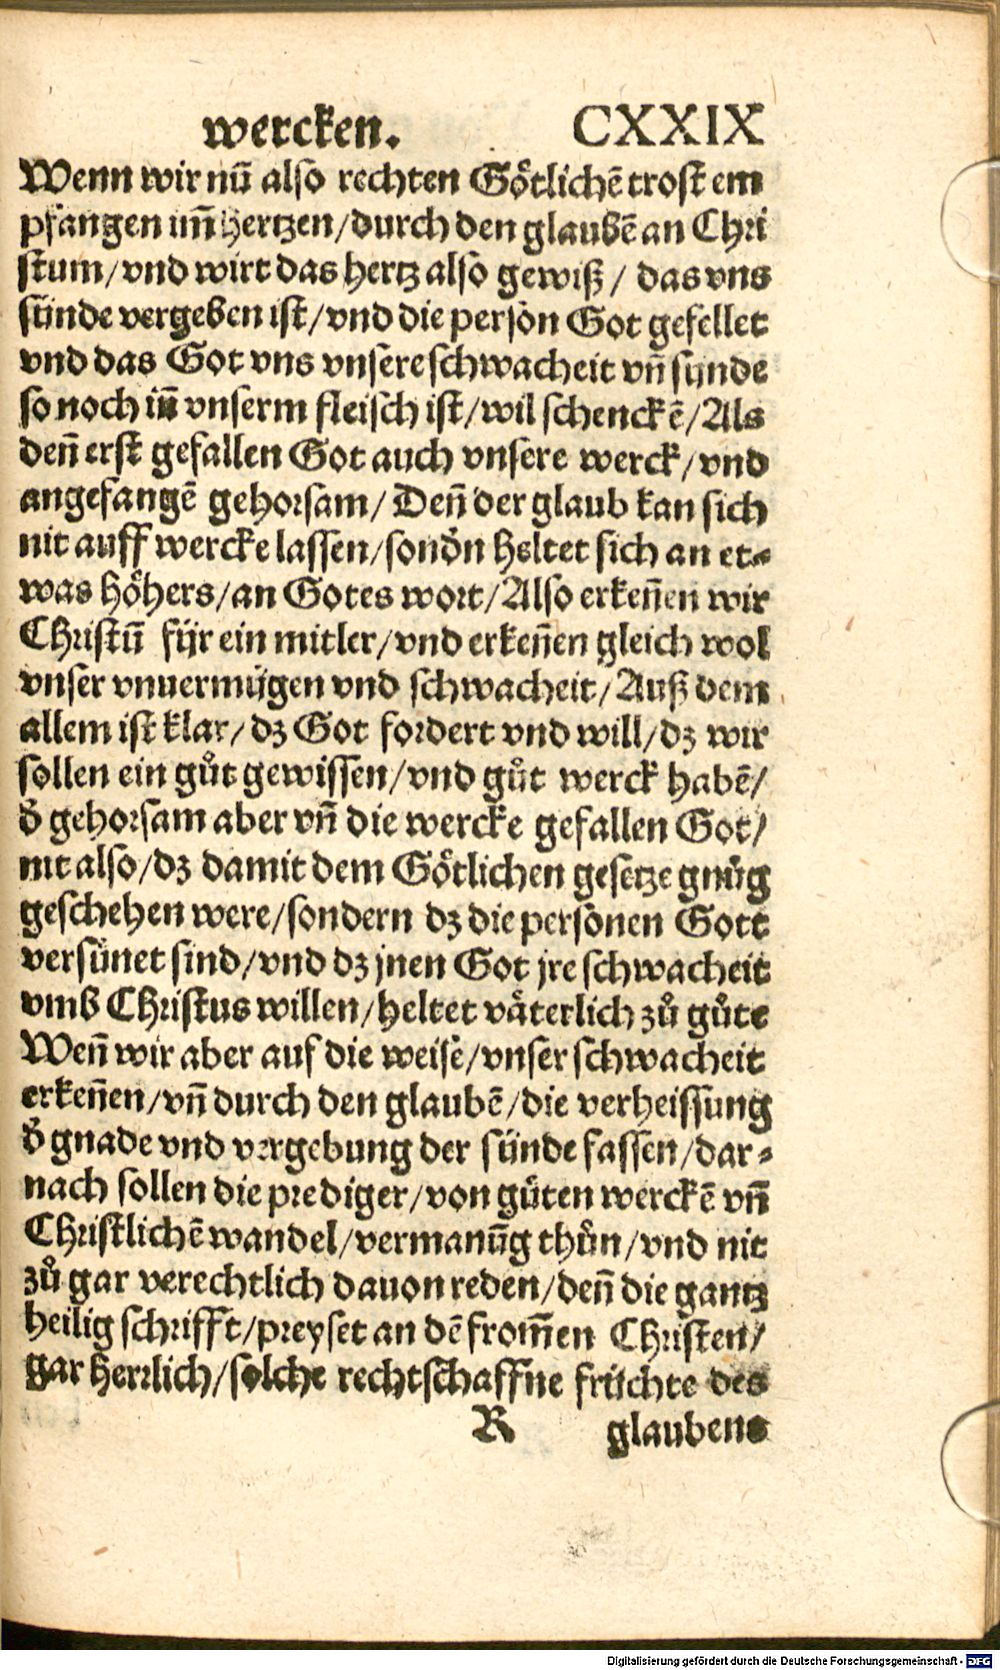 wercken. CXXIX
Wenn wir nū also rechten Götlichē trost em
pfangen im̃ hertzen/durch den glaubē an Chri
stum/vnd wirt das hertz also gewiß/ das vns
sünde vergeben ist/vnd die person Got gefellet
vnd das Got vns vnsere schwacheit vñ sünde
so noch iñ vnserm fleisch ist/wil schenckē/Als
deñ erst gefallen Got auch vnsere werck/vnd
angefangē gehorsam/ Deñ der glaub kan sich
nit auff wercke lassen/sonďn heltet sich an et⸗
was höhers/an Gotes wort/Also erkeñen wir
Christū für ein mitler/vnd erkeñen gleich wol
vnser vnuermügen vnd schwacheit/Auß dem
allem ist klar/dz Got fordert vnd will/dz wir
sollen ein gůt gewissen/vnd gůt werck habē/
ď gehorsam aber vñ die wercke gefallen Got/
nit also/dz damit dem Götlichen gesetze gnůg
geschehen were/sondern dz die personen Gott
versünet sind/vnd dz jnen Got jre schwacheit
vmb Christus willen/heltet väterlich zů gůte
Weñ wir aber auf die weise/vnser schwacheit
erkeñen/vñ durch den glaubē/die verheissung
ď gnade vnd vergebung der sünde fassen/dar⸗
nach sollen die prediger/von gůten werckē vñ
Christlichē wandel/vermanūg thůn/vnd nit
zů gar verechtlich dauon reden/deñ die gantz
heilig schrifft/preyset an dē from̃en Christen/
gar herrlich/solche rechtschaffne früchte des
R glaubens
Digitalisierung gefördert durch die Deutsche Forschungsgemeinschaft - DFG